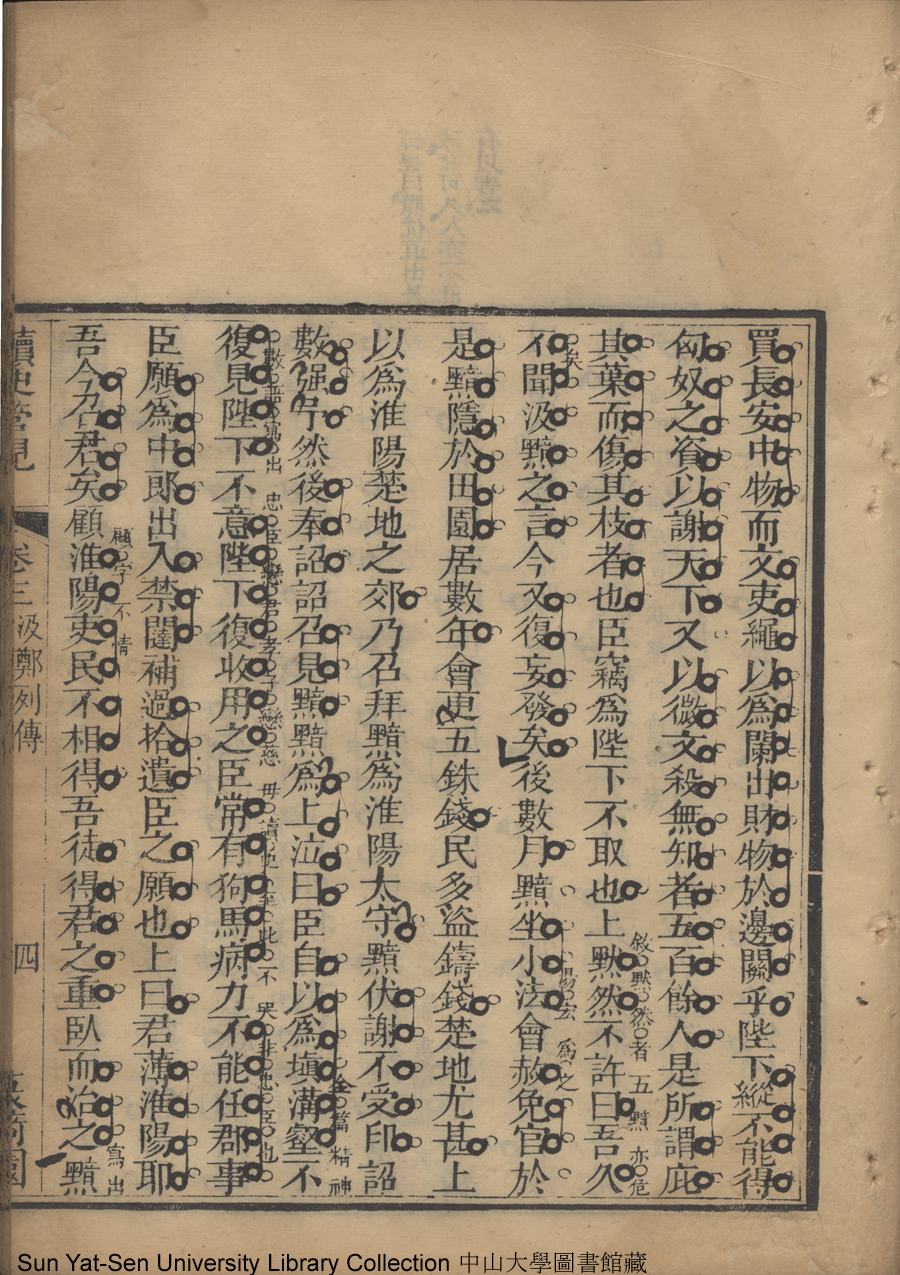 買長安中物而文吏繩以為闌出財物於邊關乎陛下縱不能得
匈奴之資以謝天下又以微文殺無知者五百餘人是所謂庇
其葉而傷其枝者也臣竊為陛下不取也上默然不許曰吾久
敘默然者五黯亦危
矣
不聞汲黯之言今又復妄發矣後數月黯坐小法會赦免官於
為之
是黯隱於田園居數年會更五銖錢民多盜鑄錢楚地尤甚上
以為淮陽楚地之郊乃召拜黯為淮陽太守黯伏謝不受印詔
篇精神
數强予然後奉詔詔召見黯黯為上泣曰臣自以為塡溝壑不
數語寫出忠臣戀君孝子戀慈母讀史至此不哭非忠臣也
復見陛下不意陛下復收用之臣常有狗馬病力不能任郡事
臣願為中郎出入禁闥補過拾遺臣之願也上曰君薄淮陽耶
顧字不情
寫出
吾今召君矣顧淮陽吏民不相得吾徒得君之重臥而治之黯
讀史管見
卷三
汲鄭列傳
四
Sun Yat-Sen University Library Collection 中山大學圖書館藏